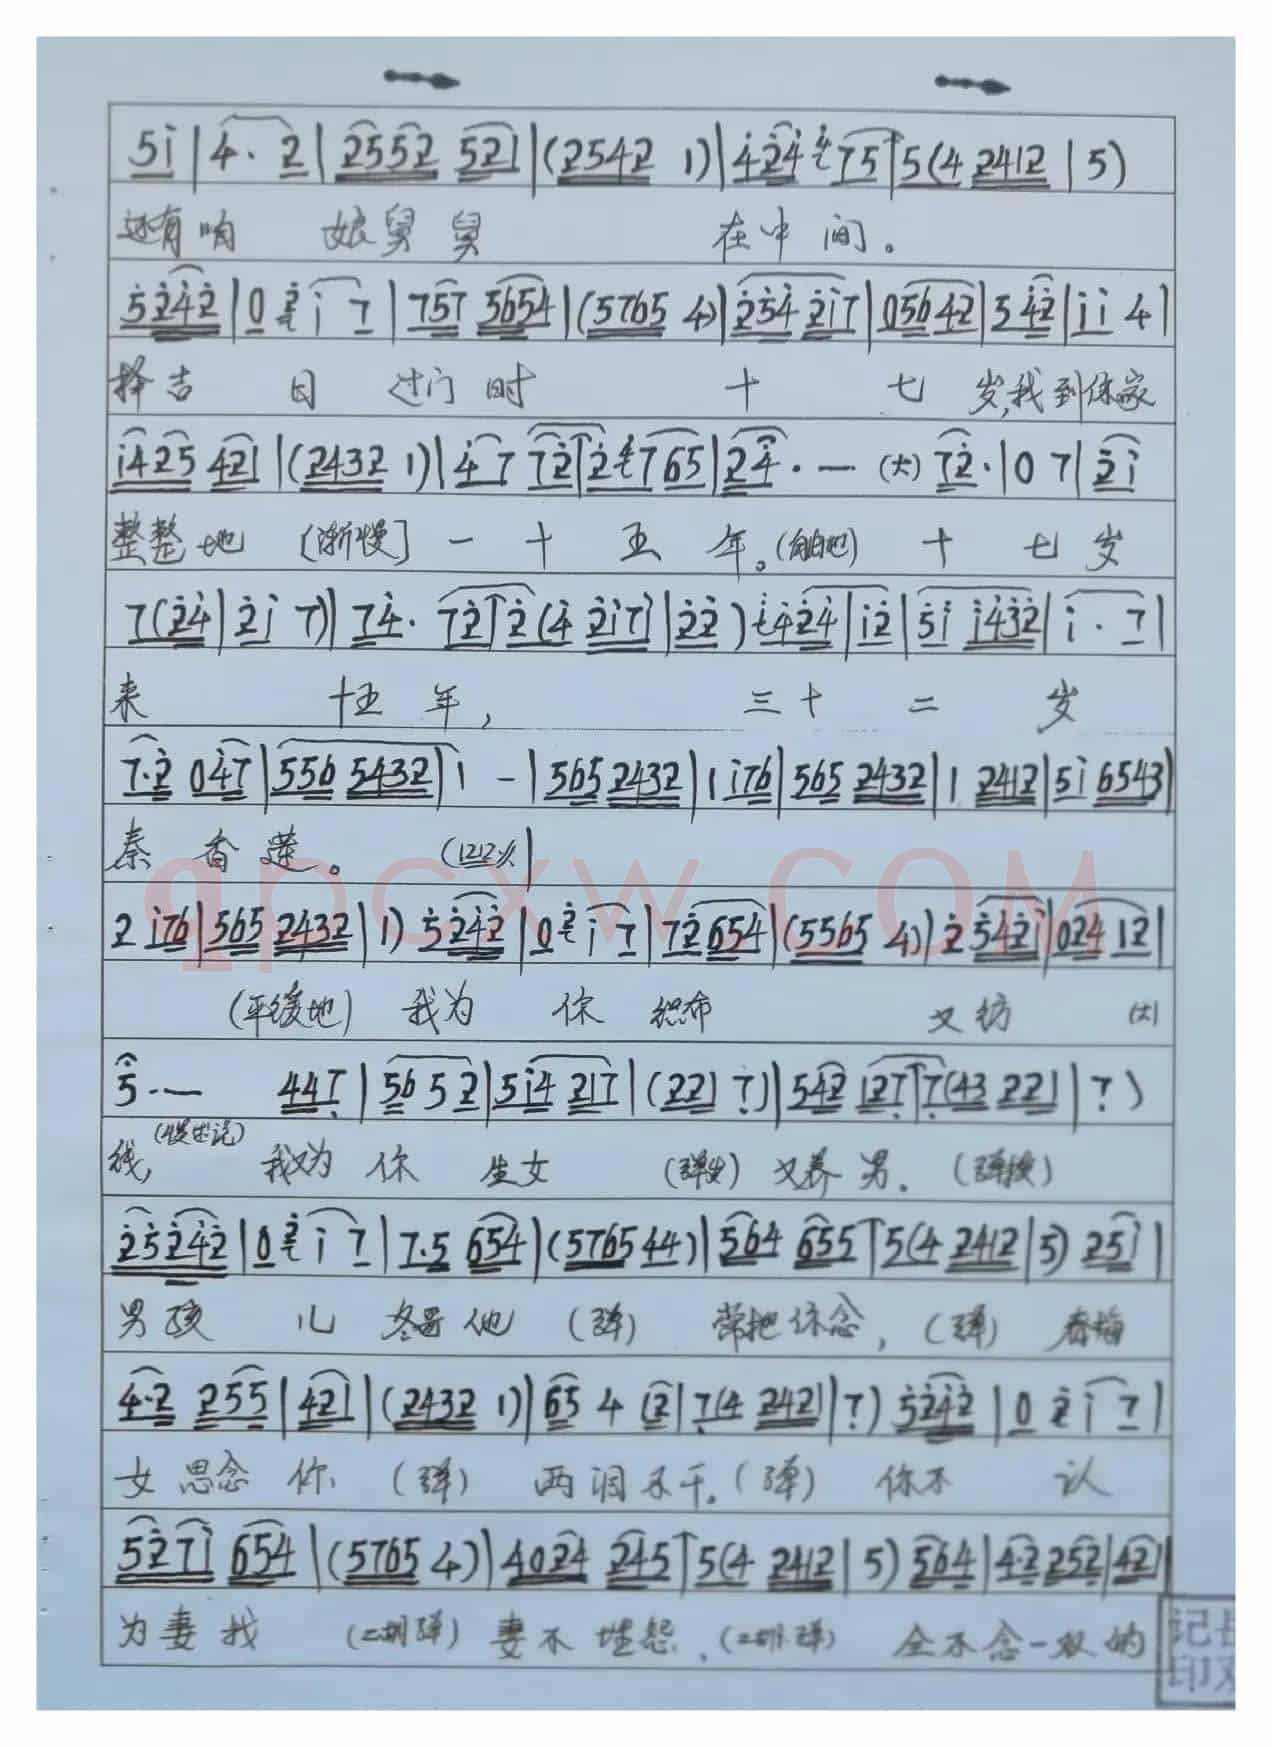 5i | 4. 2 | 2552 521 | (2542 1) | 424 75 | 5(4 2412 | 5)
还有响 娘舅舅 在中间。
5242 | 0 2 i 7 | 757 5654 | (5765 4) | 254 2i7 | 05642 | 5 42 | ii 4 |
择吉 日 过门时 十 七 岁,我到你家
i425 421 | (2432 1) | 47 72 | 2 4765 | 24. — (大) 72. | 0 7 | 2i
整整地 [渐慢] 一十五年。 十七岁
7(24 | 2i 7) | 74. 72 | 2(4 2i7 | 22) 424 | i2 | 5i i432 | i. 7 |
来 十五年, 三十二岁
7.2 047 | 556 5432 | 1 - | 565 2432 | 1 i76 | 565 2432 | 1 2412 | 5i 6543 |
秦香莲。
2 i76 | 565 2432 | 1) 5242 | 0 2 i 7 | 72 654 | (5565 4) 2 542i | 024 12 |
(平缓地) 我为 你 织布 又纺 (大)
5. — 447 | 56 5 2 | 5i4 217 | (221 7) | 542 127 | 7(43 221 | 7)
线, 我又为 你 生女 又养男.
25242 | 0 2 i 7 | 7.5 654 | (5765 44) | 564 655 | 5(4 2412 | 5) 25i |
男孩 儿 冬哥他 (弹) 常把你念, (弹) 春梅
4.2 255 | 421 | (2432 1) | 65 4 12 | 7(4 2421 | 7) 5242 | 0 2 i 7 |
女 思念 你 (弹) 两泪不干. (弹) 你不 认
527i 654 | (5765 4) | 4024 245 | 5(4 2412 | 5) 564 | 4.2 252 | 421
为妻我 (二胡弹) 妻不埋怨, (二胡.弹) 全不念一双的
记
印
qpcxw.COM